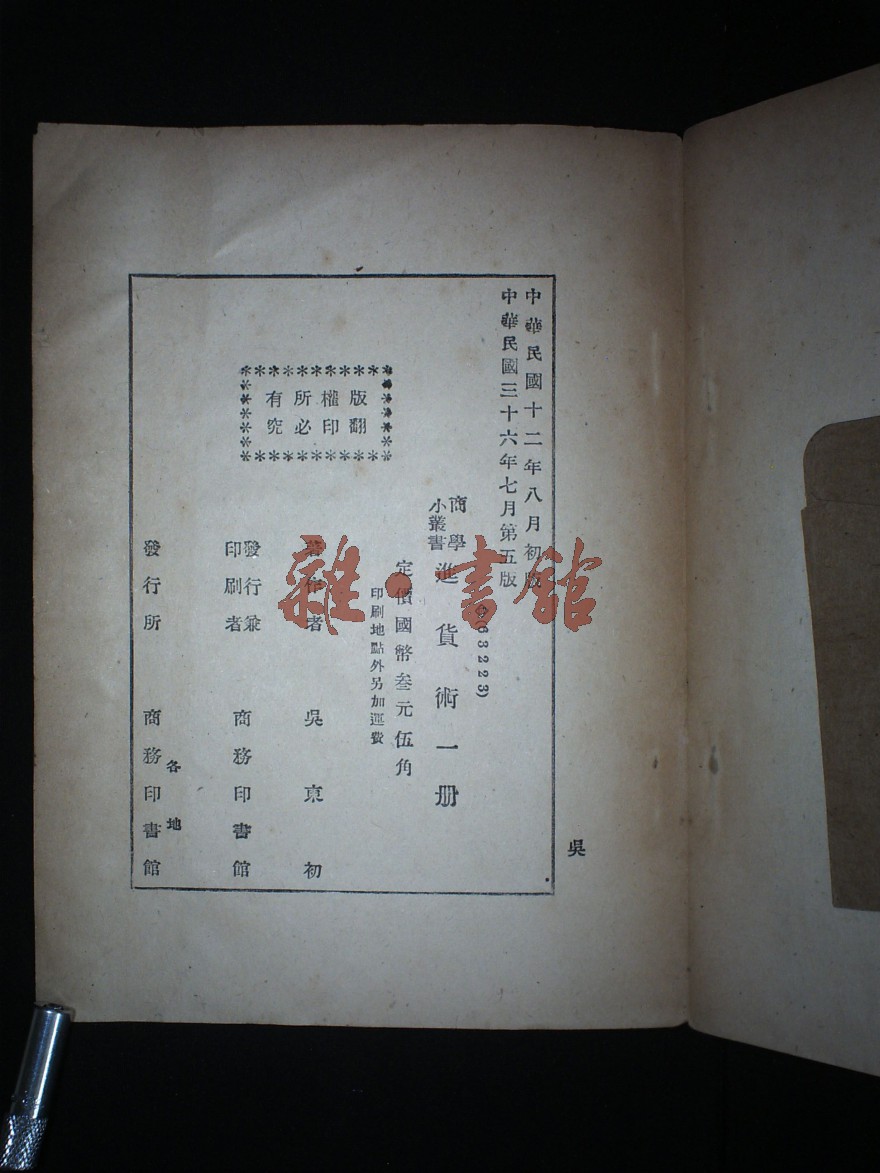 中華民國十二年八月初版
中華民國三十六年七月第五版
商學
小叢書
進貨術一册
63223)
定價國幣叁元伍角
印刷地點外另加運費
版權所有
翻印必究
著作者 吳東初
發行兼
印刷者
商務印書館
各地
發行所 商務印書館
吳
雜·書館